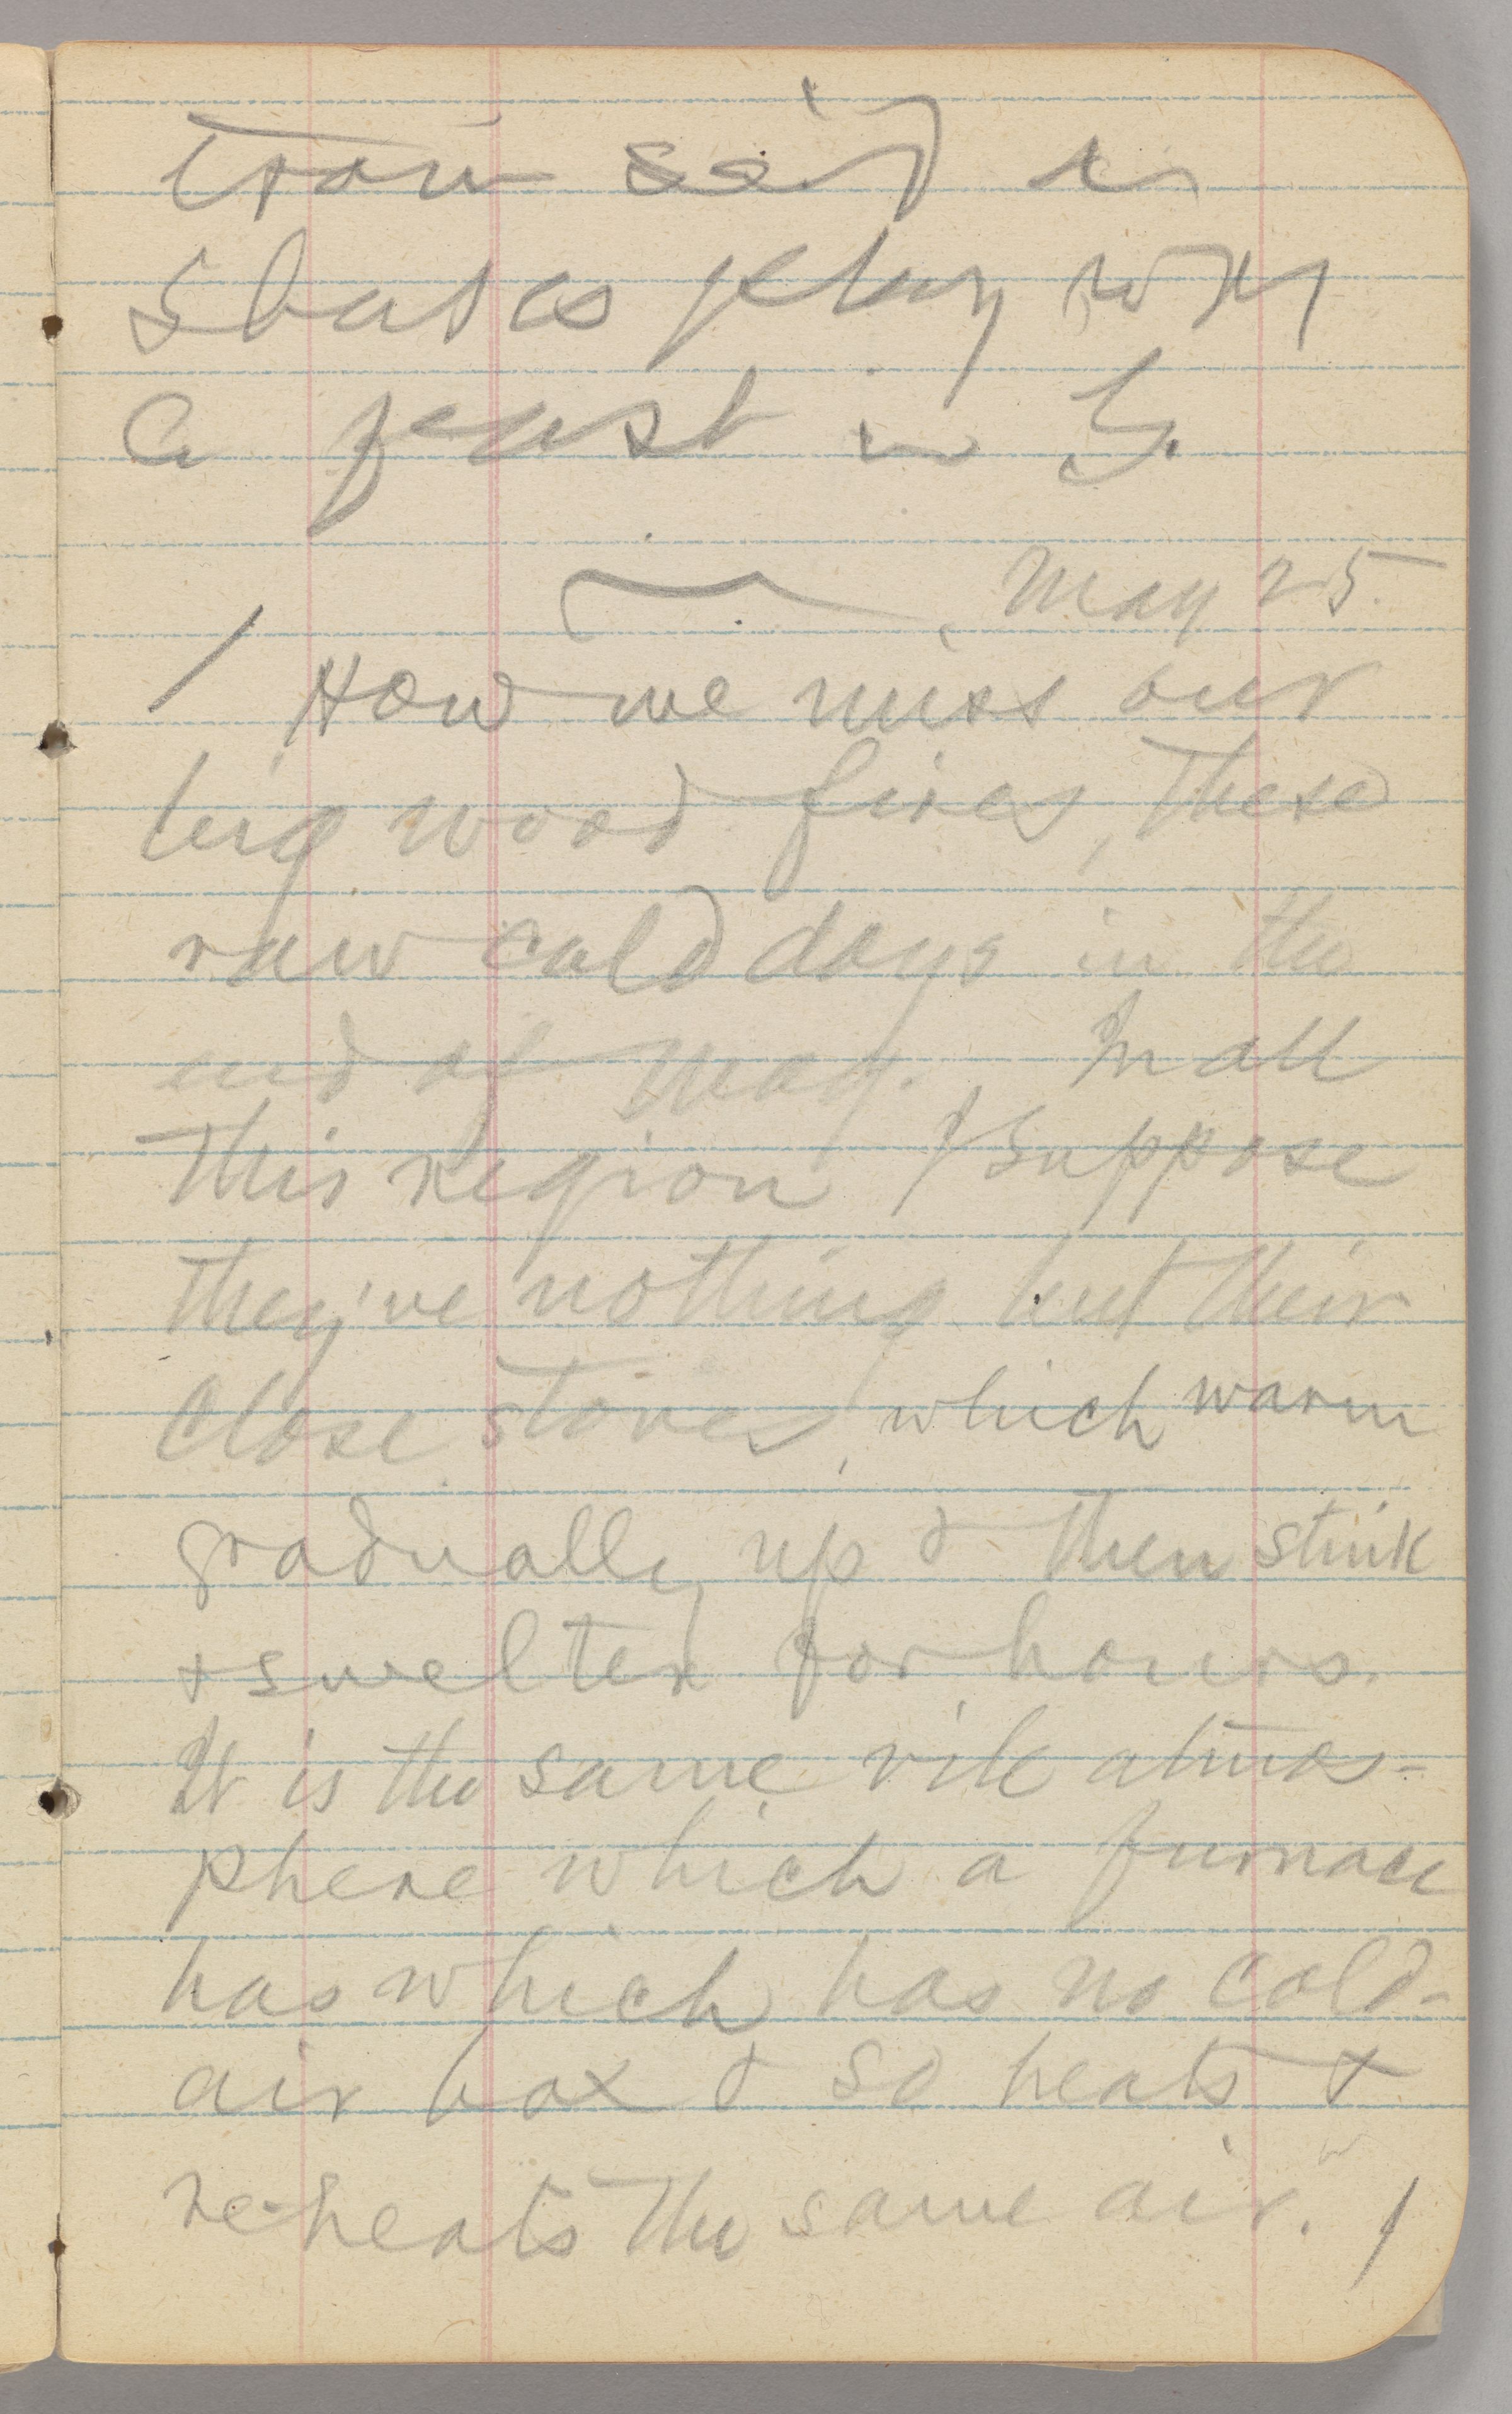 train
Shakes play
a feast in
May 25.
/ How we miss our
big wood fires, these
raw cold days in the
end of May. In all
this region I suppose
they've nothing but their
close stoves, which warm
gradually up & then stink
& swelter for hours.
It is the same vile atmos-
phere which a furnace
has which has no cold-
air box & so heats &
re-heats the same air. /